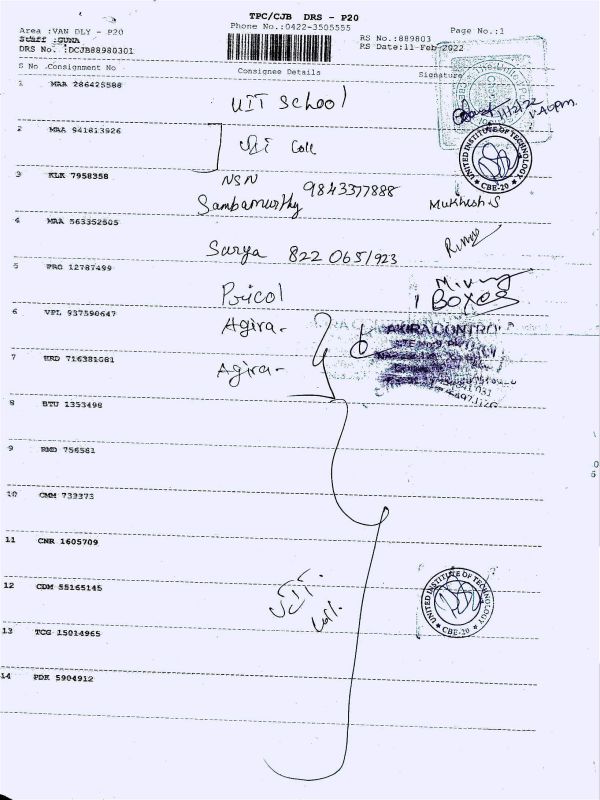 TPC/CJB DRS - P20
Phone No.:0422-3505555
Page No.:1
Area :VAN DLY - P20
Staff :GUNA
DRS No. :DCJB88980301
RS No.:889803
RS Date:11-Feb-2022
S No Consignment No Consignee Details Signature
1 MAA 286425588 UIT School
11/2/22
2 MAA 941813926
UNITED INSTITUTE OF TECHNOLOGY
* CBE-20 *
3 KLK 7958358 NSN
Sambamurthy 9843377888 Mukhesh.S
4 MAA 563352505
Surya 822 0651923
5 PRG 12787499
Pricol 1 Boxes
6 VPL 937590647 Agira-
AKIRA CONTROL
7 KRD 716381081 Agira-
8 BTU 1353498
9 RMD 756581
10 CMM 733373
11 CNR 1605709
12 CDM 55165145
UIT
UNITED INSTITUTE OF TECHNOLOGY
* CBE-20 *
13 TCG 15014965
14 PDK 5904912